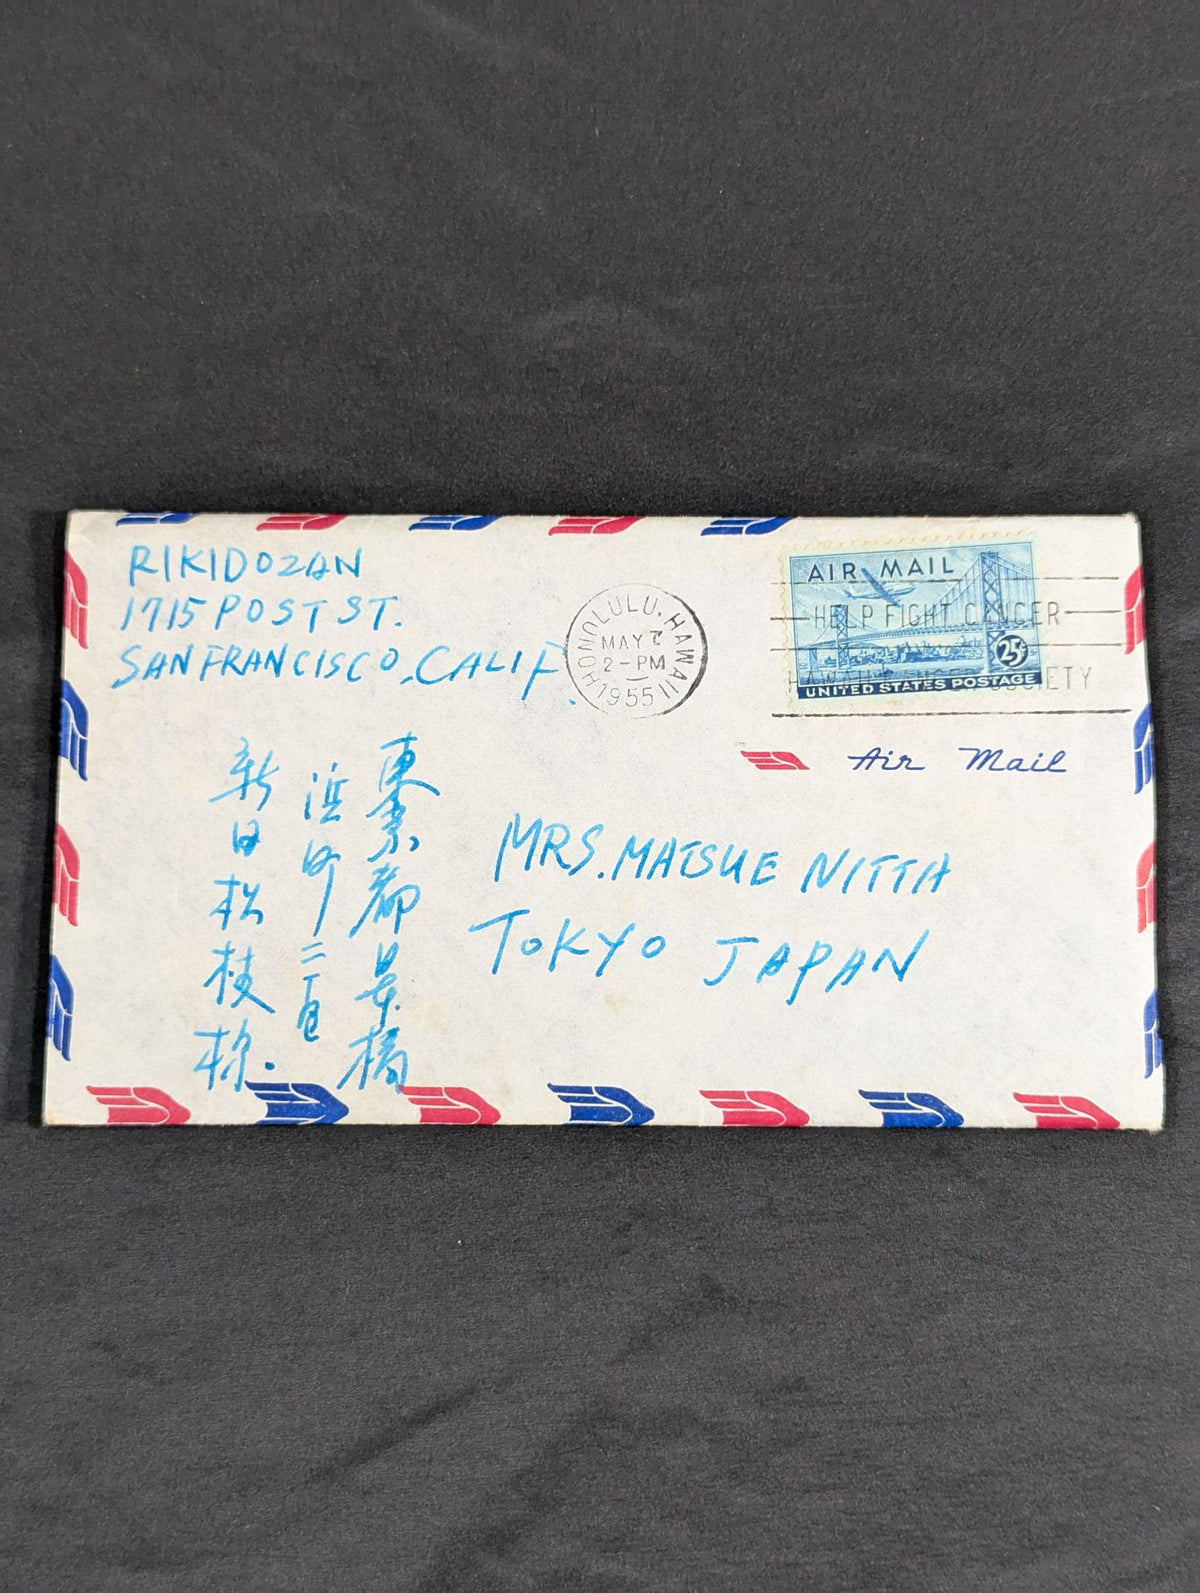 RIKIDOZAN
1715 POST ST.
SAN FRANCISCO, CALIF.
HONOLULU, HAWAII
MAY 7
2-PM
1955
AIR MAIL
25¢
UNITED STATES POSTAGE
HELP FIGHT CANCER
HAWAII CANCER SOCIETY
Air Mail
MRS. MATSUE NITTA
TOKYO JAPAN
東京都
浜町二
新田松枝